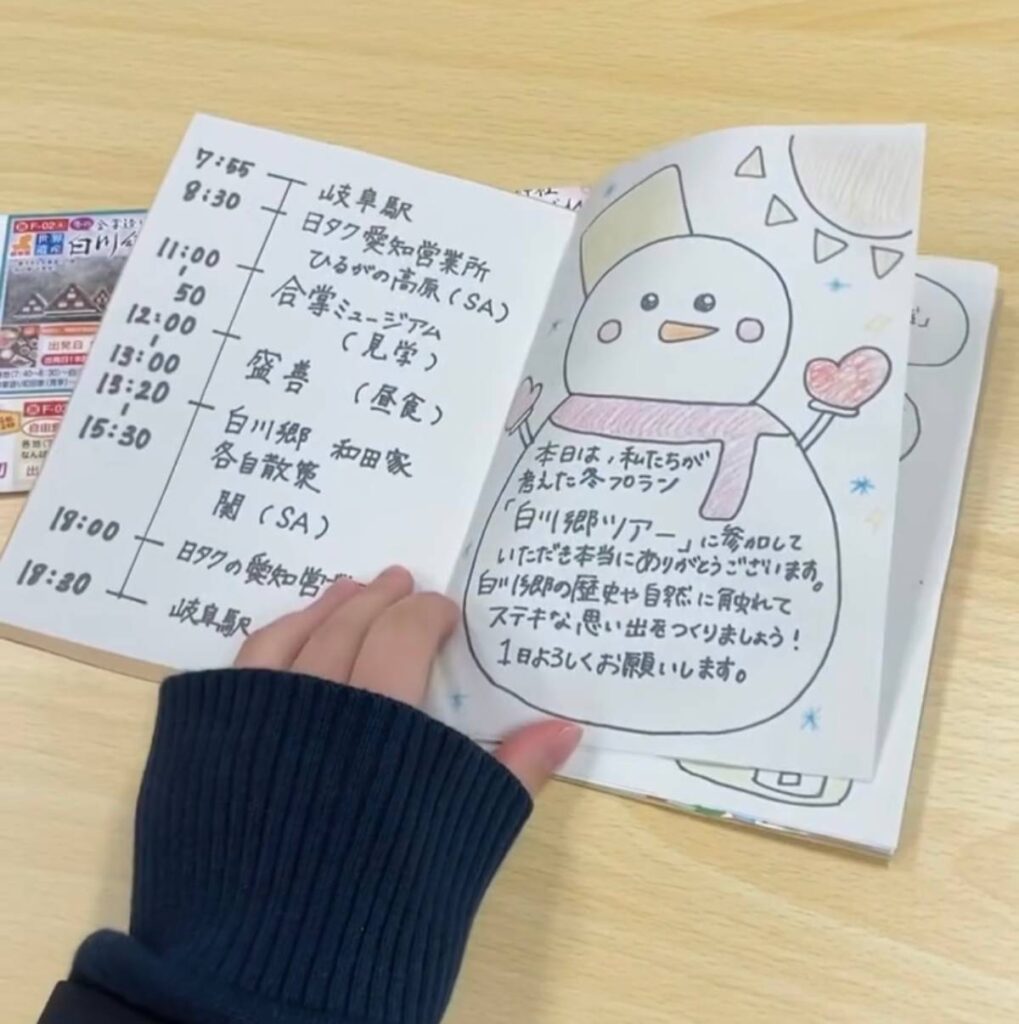 7:55
岐阜駅
8:30
日タク愛知営業所
ひるがの高原(SA)
11:00
50
合掌ミュージアム
(見学)
12:00
13:00
盛善 (昼食)
13:20
15:30
白川郷 和田家
各自散策
関(SA)
18:00
日タクの愛知営
18:30
岐阜駅
本日は、私たちが
考えた冬プラン
「白川郷ツアー」に参加して
いただき本当にありがとうございます。
白川郷の歴史や自然に触れて
ステキな思い出をつくりましょう!
1日よろしくお願いします。
F-02
白川
出発日
F-0